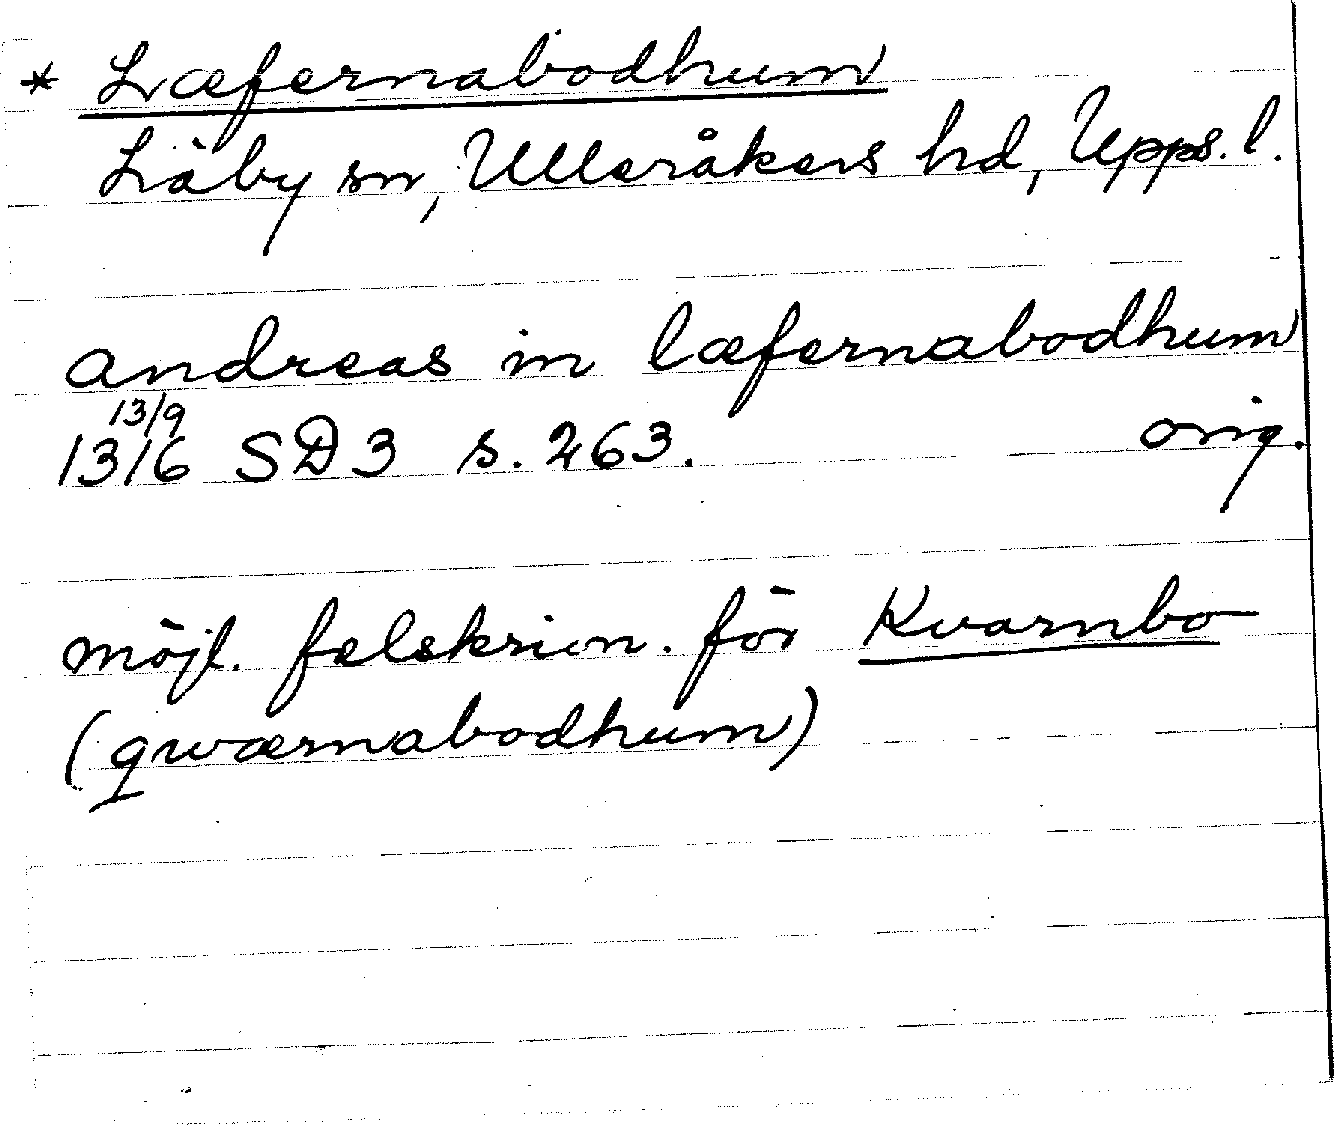 * Læfernabodhum
Läby sn, Ulleråkers hd, Upps. l.
andreas in læfernabodhum
13/9
1316 SD 3 s. 263. orig.
möjl. felskrivn. för Kvarnbo
(qwærnabodhum)